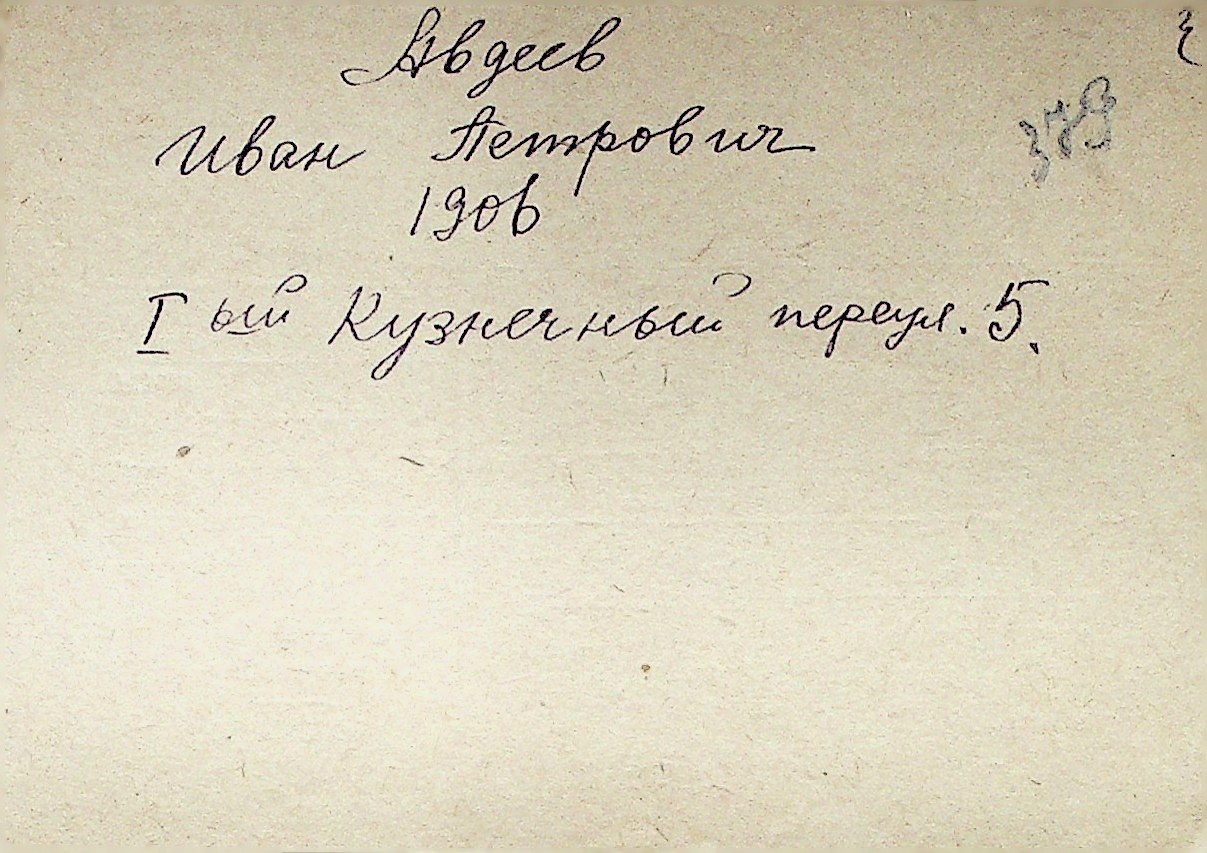 Авдеев
Иван Петрович
379
1906
I ый Кузнечный переул. 5.